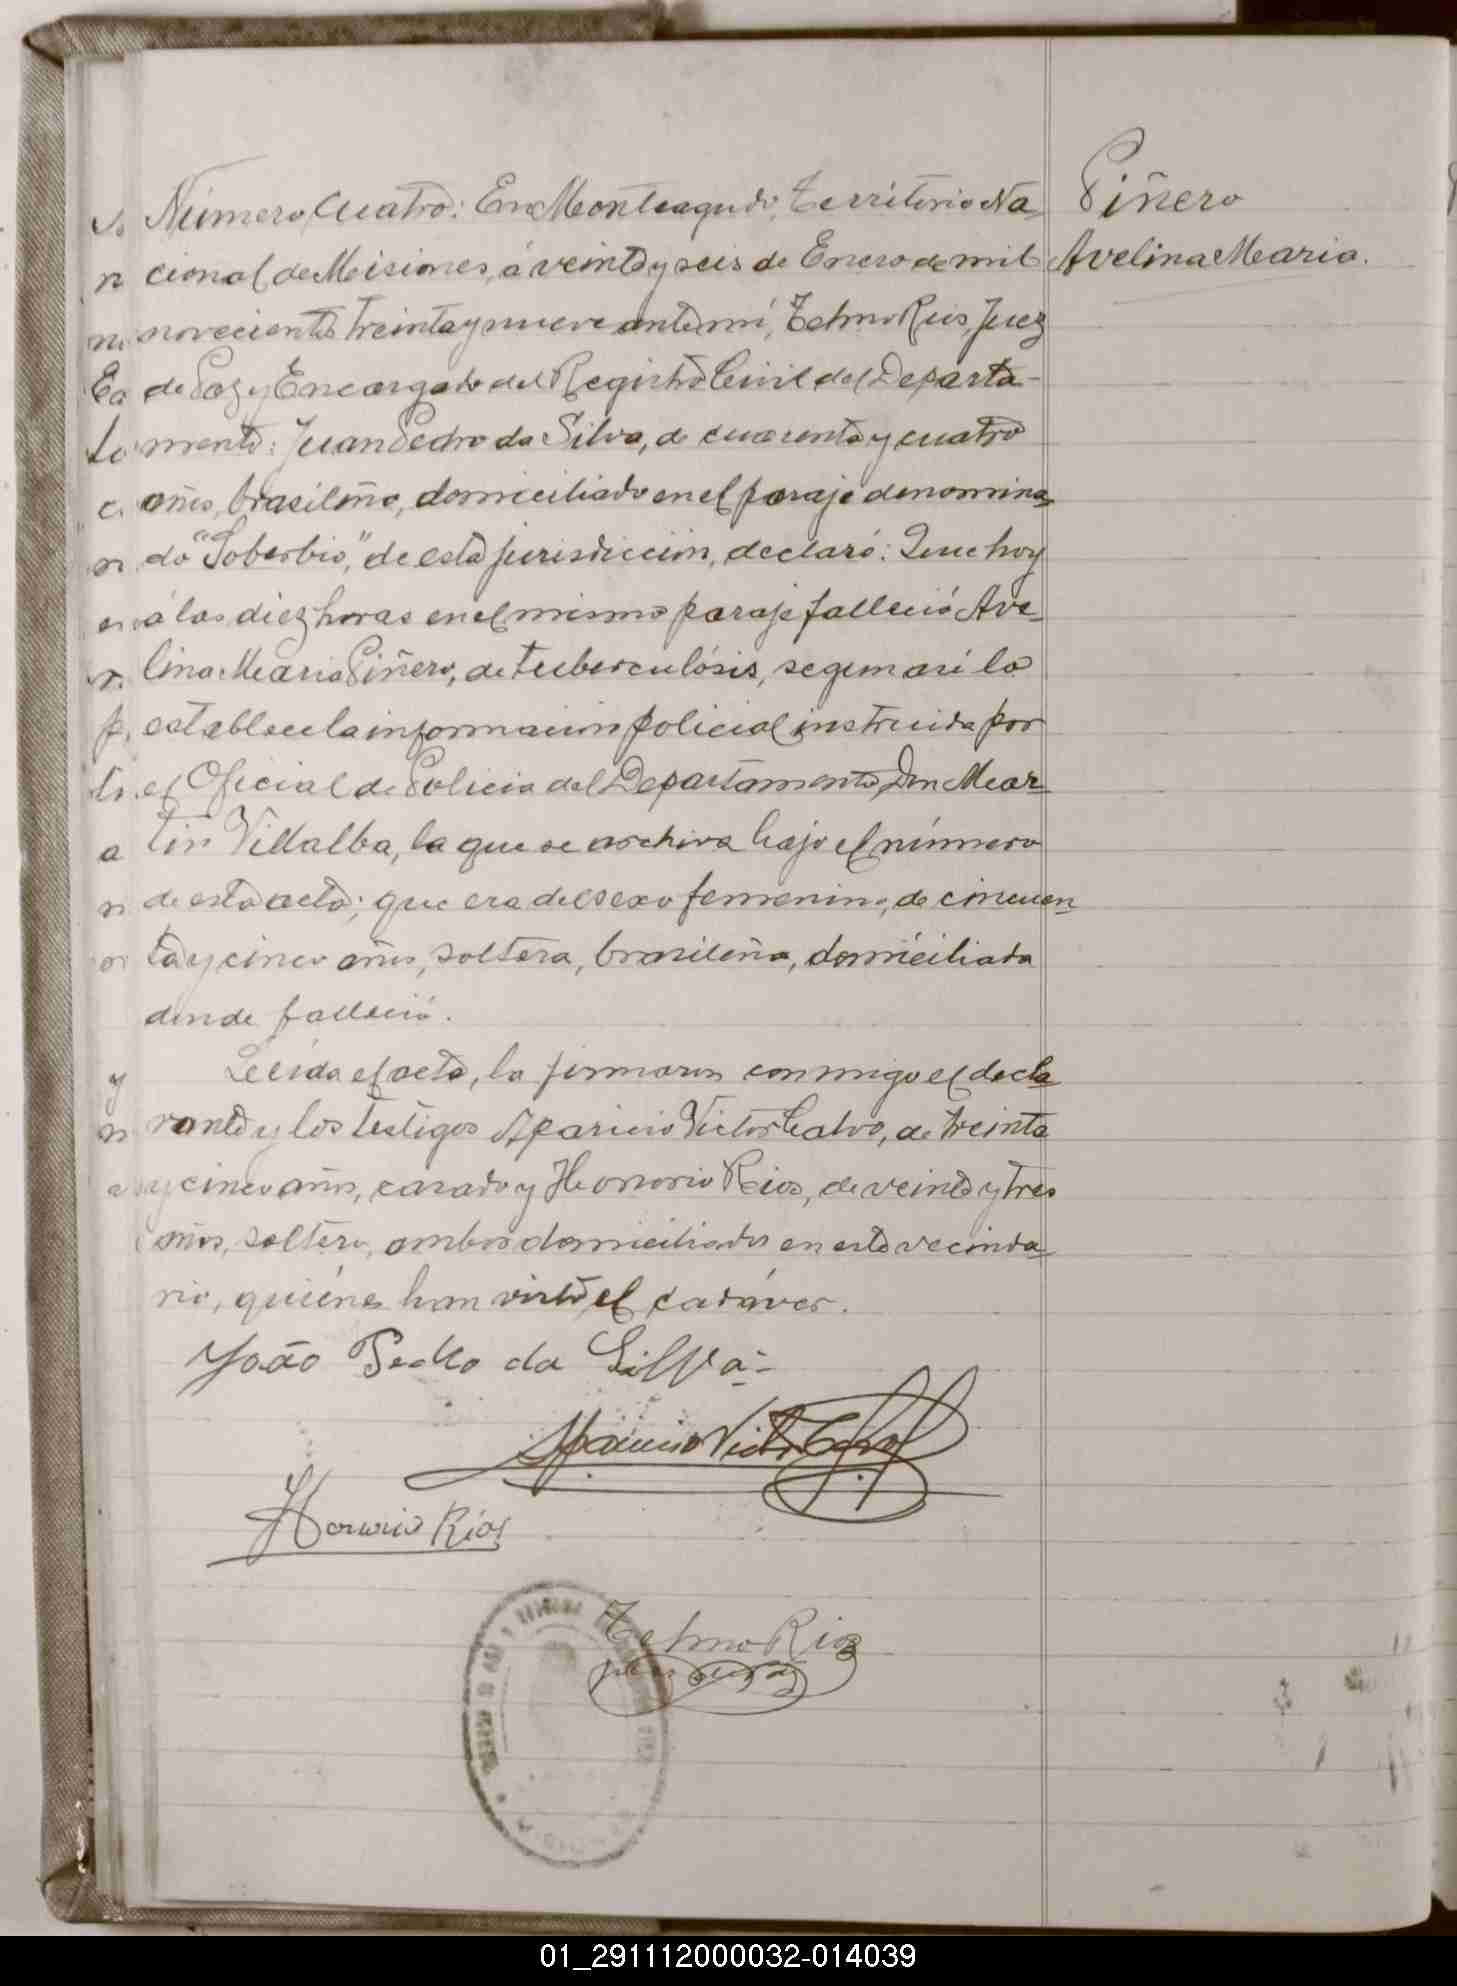 Piñero
Avelina Maria.
Número Cuatro: En Monteagudo, Territorio Na-
cional de Misiones, á veinte y seis de Enero de mil
novecientos treinta y nueve ante mí, Telmo Rios, Juez
de Paz y Encargado del Registro Civil del Departa-
mento: Juan Pedro da Silva, de cuarenta y cuatro
años, brasileño, domiciliado en el paraje denomina-
do "Soberbio," de esta jurisdicción, declaró: Que hoy
á las diez horas en el mismo paraje falleció Ave-
lina Maria Piñero, de tuberculósis, segun asi lo
establece la información policial instruida por
el Oficial de Policia del Departamento, Don Mar-
tin Villalba, la que se archiva bajo el número
de esta acta; que era del sexo femenino, de cincuen-
ta y cinco años, soltera, brasileña, domiciliada
donde falleció.
Leida el acta, la firmaron conmigo el decla-
rante y los testigos Aparicio Victor Calvo, de treinta
y cinco años, casado y Honorio Rios, de veinte y tres
años, soltero, ambos domiciliados en este vecinda-
rio, quiénes han visto el cadáver.
João Pedro da Silva
Aparicio Victor Calvo
Honorio Rios
Telmo Rios
01_291112000032-014039